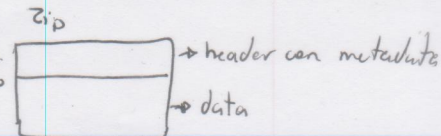 Zip
header con metadata
data